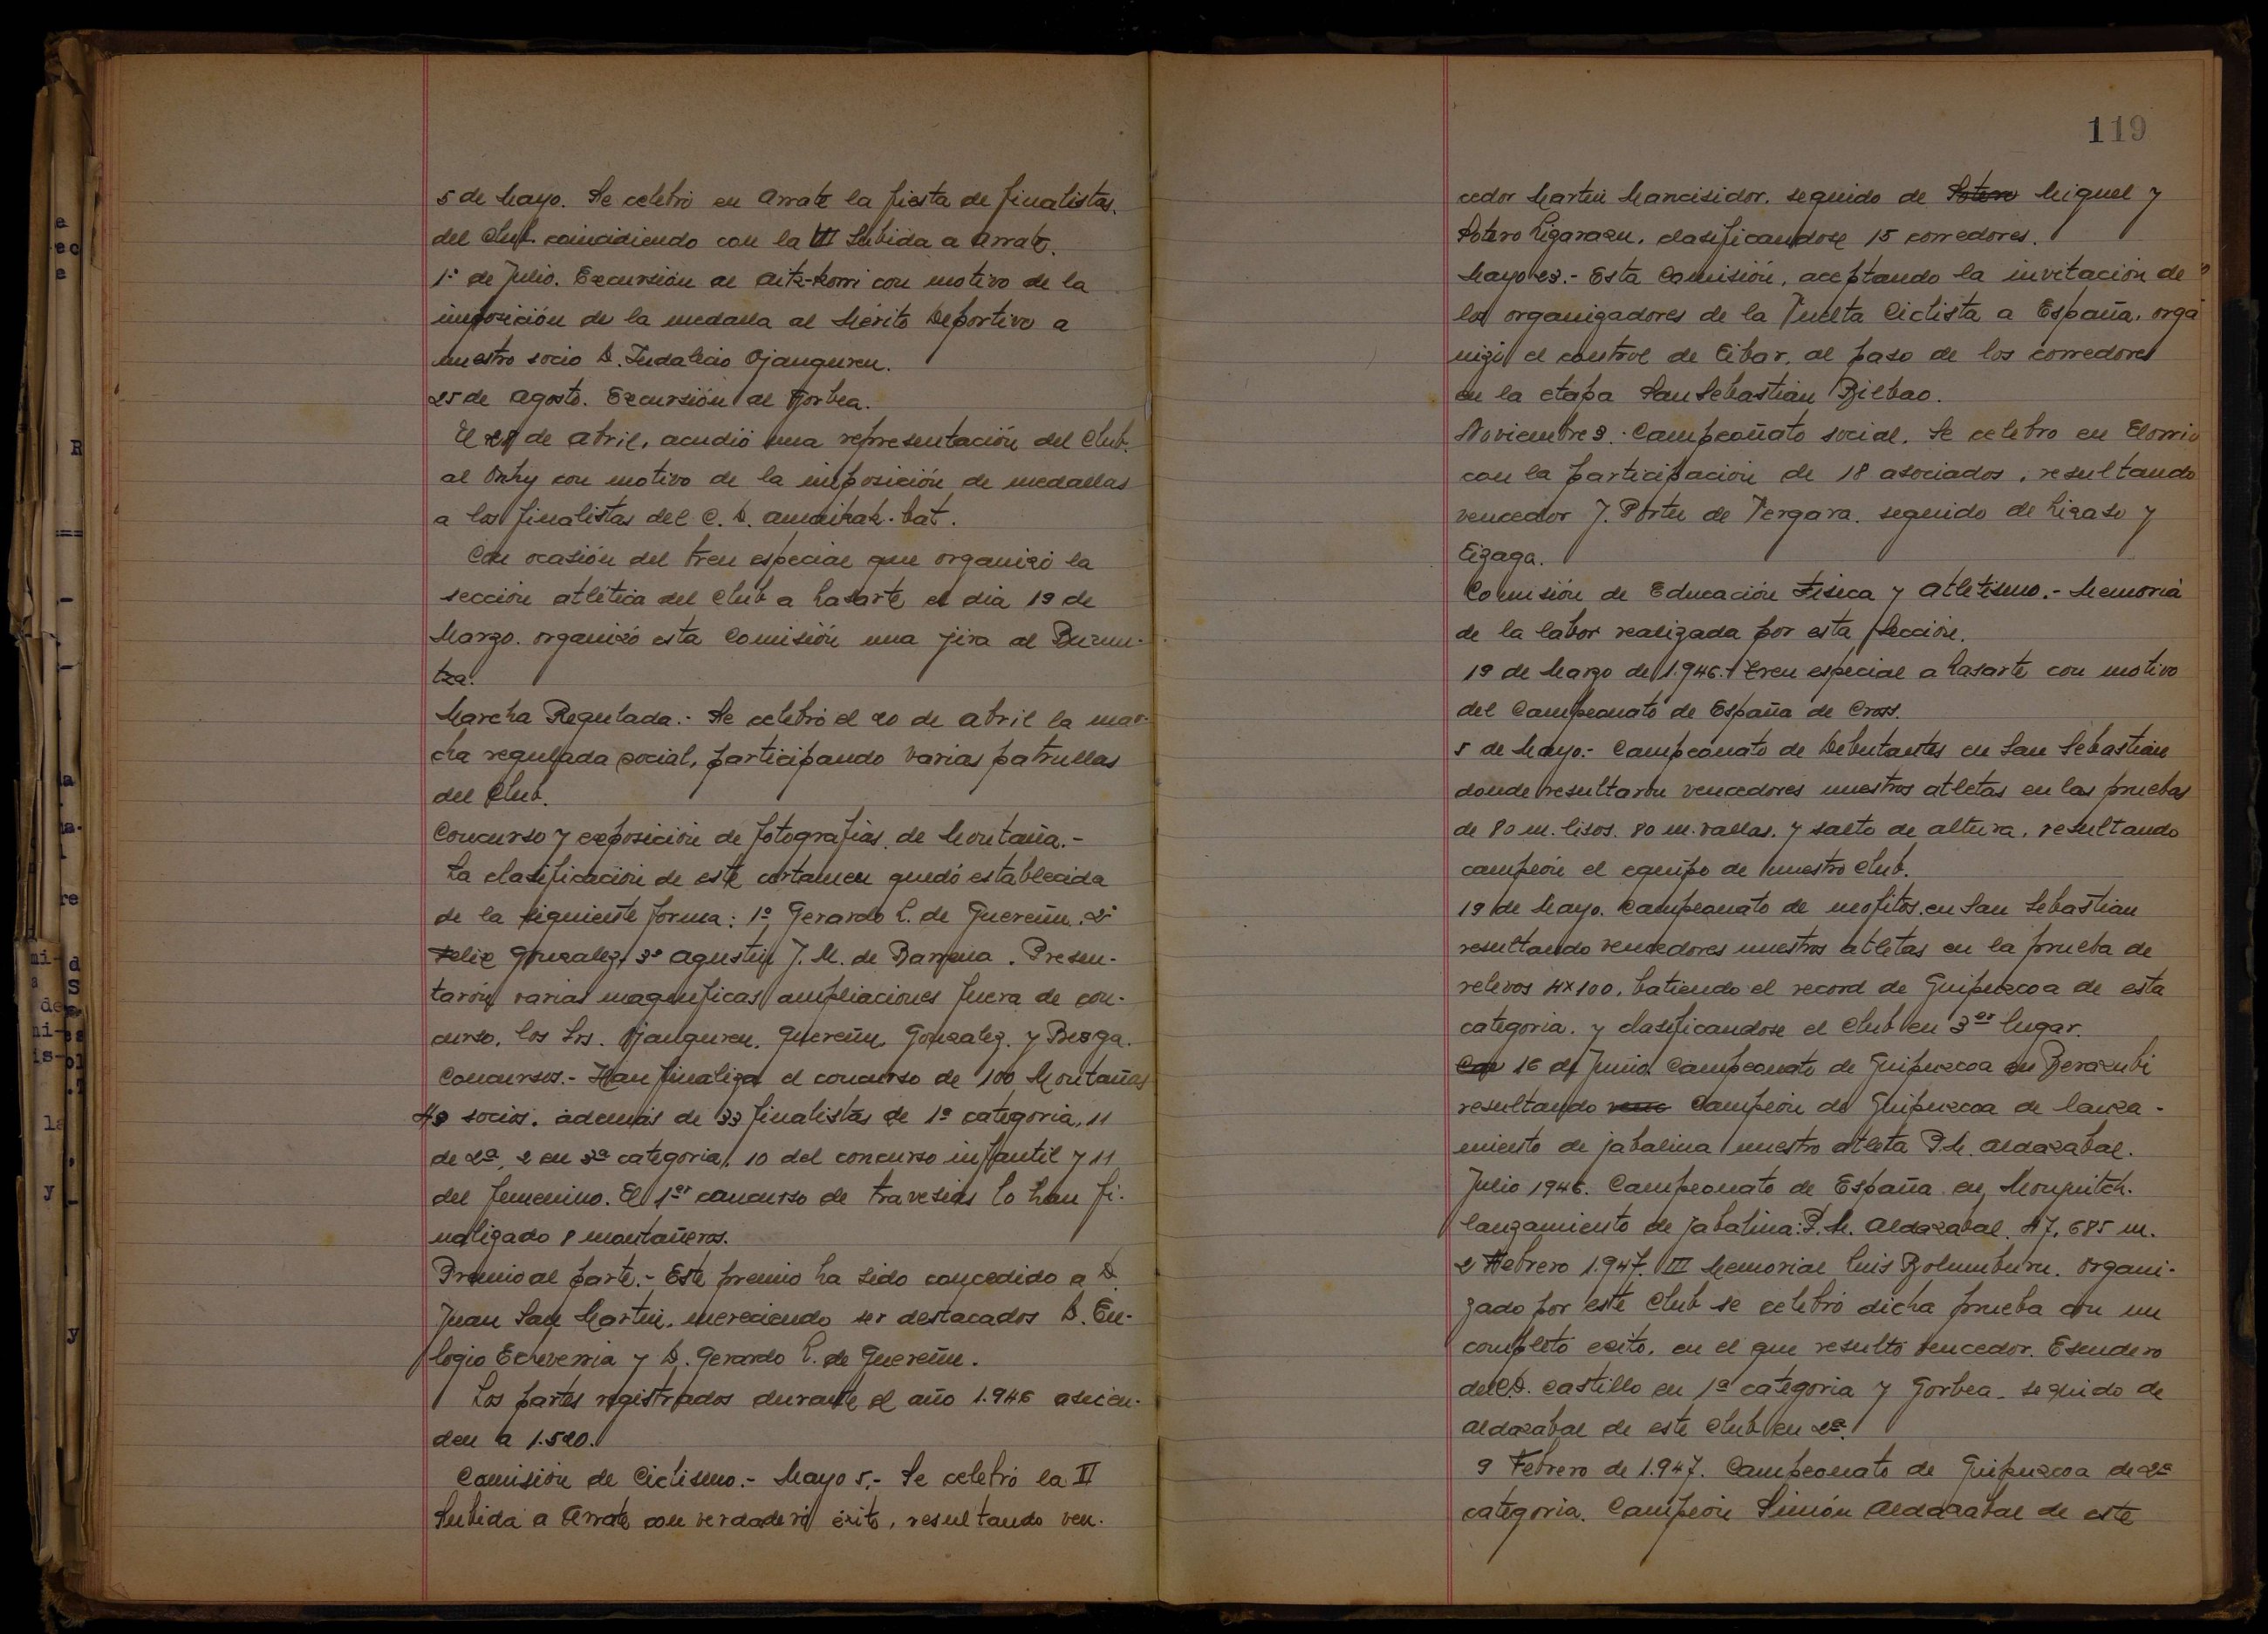 5 de Mayo. Se celebró en Arrate la fiesta de finalistas.
del Club coincidiendo con la VII Subida a Arrate.
1º de Julio. Excursión al Aitz-Korri con motivo de la
imposición de la medalla al Mérito Deportivo a
nuestro socio D. Indalecio Ojanguren.
25 de Agosto. Excursión al Gorbea.
El 28 de Abril, acudió una representación del Club.
al Orhy con motivo de la imposición de medallas
a los finalistas del C. D. Amaikak-bat.
Con ocasión del tren especial que organizó la
sección atlética del Club a Lasarte el dia 19 de
Marzo. organizó esta Comisión una jira al Burun-
tza.
Marcha Regulada.- Se celebró el 20 de Abril la mar-
cha regulada social, participando varias patrullas
del Club.
Concurso y exposición de fotografias de Montaña.-
La clasificación de este certamen quedó establecida
de la siguiente forma: 1º Gerardo L. de Guereñu. 2º
Felix Gonzalez, 3º Agustin J. M. de Barrena. Presen-
tarón varias magnificas ampliaciones fuera de con-
curso, los Srs. Ojanguren, Guereñu, Gonzalez. y Besga.
Concursos.- Han finalizado el concurso de 100 Montañas
43 socios. además de 33 finalistas de 1ª categoria, 11
de 2ª, 2 en 3ª categoria, 10 del concurso infantil y 11
del femenino. El 1er concurso de travesias lo han fi-
nalizado 8 montañeros.
Premio al parte.- Este premio ha sido concedido a D.
Juan San Martin, mereciendo ser destacados D. Eu-
logio Echeverria y D. Gerardo L. de Guereñu.
Los partes registrados durante el año 1.946 ascien-
den a 1.520.
Comisión de Ciclismo.- Mayo 5.- Se celebró la VI
Subida a Arrate con verdadero éxito, resultando ven-
119
cedor Martin Mancisidor. seguido de Miguel y
Sotero Lizarazu, clasificandose 15 corredores.
Mayo 23.- Esta Comisión, aceptando la invitación de
los organizadores de la Vuelta Ciclista a España, orga
nizó el control de Eibar, al paso de los corredores
en la etapa San Sebastian Bilbao.
Noviembre 3.- Campeonato social. Se celebro en Elorrio
con la participación de 18 asociados, resultando
vencedor J. Portu de Vergara. seguido de Lizaso y
Eizaga.
Comisión de Educación Fisica y Atletismo.- Memoria
de la labor realizada por esta Sección.
19 de Marzo de 1.946.- Tren especial a Lasarte con motivo
del Campeonato de España de Cross.
5 de Mayo.- Campeonato de Debutantes en San Sebastián
donde resultarón vencedores nuestros atletas en las pruebas
de 80 m. lisos. 80 m. vallas. y salto de altura, resultando
campeón el equipo de nuestro Club.
19 de Mayo. Campeonato de neofitos en San Sebastian
resultando vencedores nuestros atletas en la prueba de
relevos 4x100, batiendo el record de Guipuzcoa de esta
categoria. y clasificandose el Club en 3er lugar.
16 de Junio Campeonato de Guipuzcoa en Berazubi
resultando Campeón de Guipuzcoa de lanza-
miento de jabalina nuestro atleta P. M. Aldazabal.
Julio 1946. Campeonato de España en Monjuitch.
lanzamiento de jabalina: P. M. Aldazabal. 47,685 m.
2 Febrero 1.947. III Memorial Luis Bolumburu. Organi-
zado por este Club se celebró dicha prueba con un
completo exito, en el que resultó vencedor. Escudero
del C.D. Castillo en 1ª categoria y Gorbea seguido de
Aldazabal de este Club en 2ª.
9 Febrero de 1.947. Campeonato de Guipuzcoa de 2ª
categoria. Campeón Simón Aldazabal de este